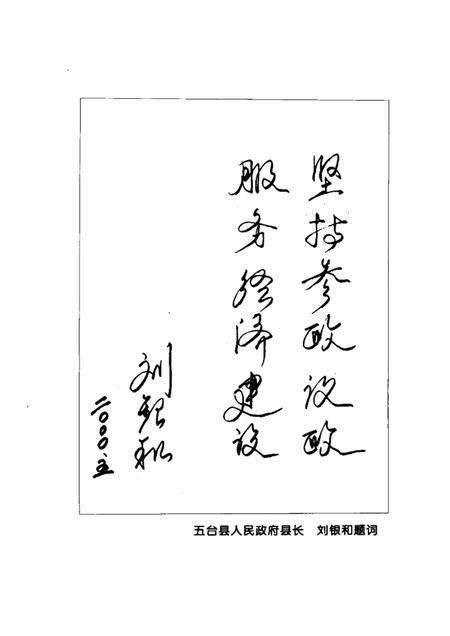 坚持参政议政
服务经济建设
刘银和
二〇〇〇.五
五台县人民政府县长 刘银和题词